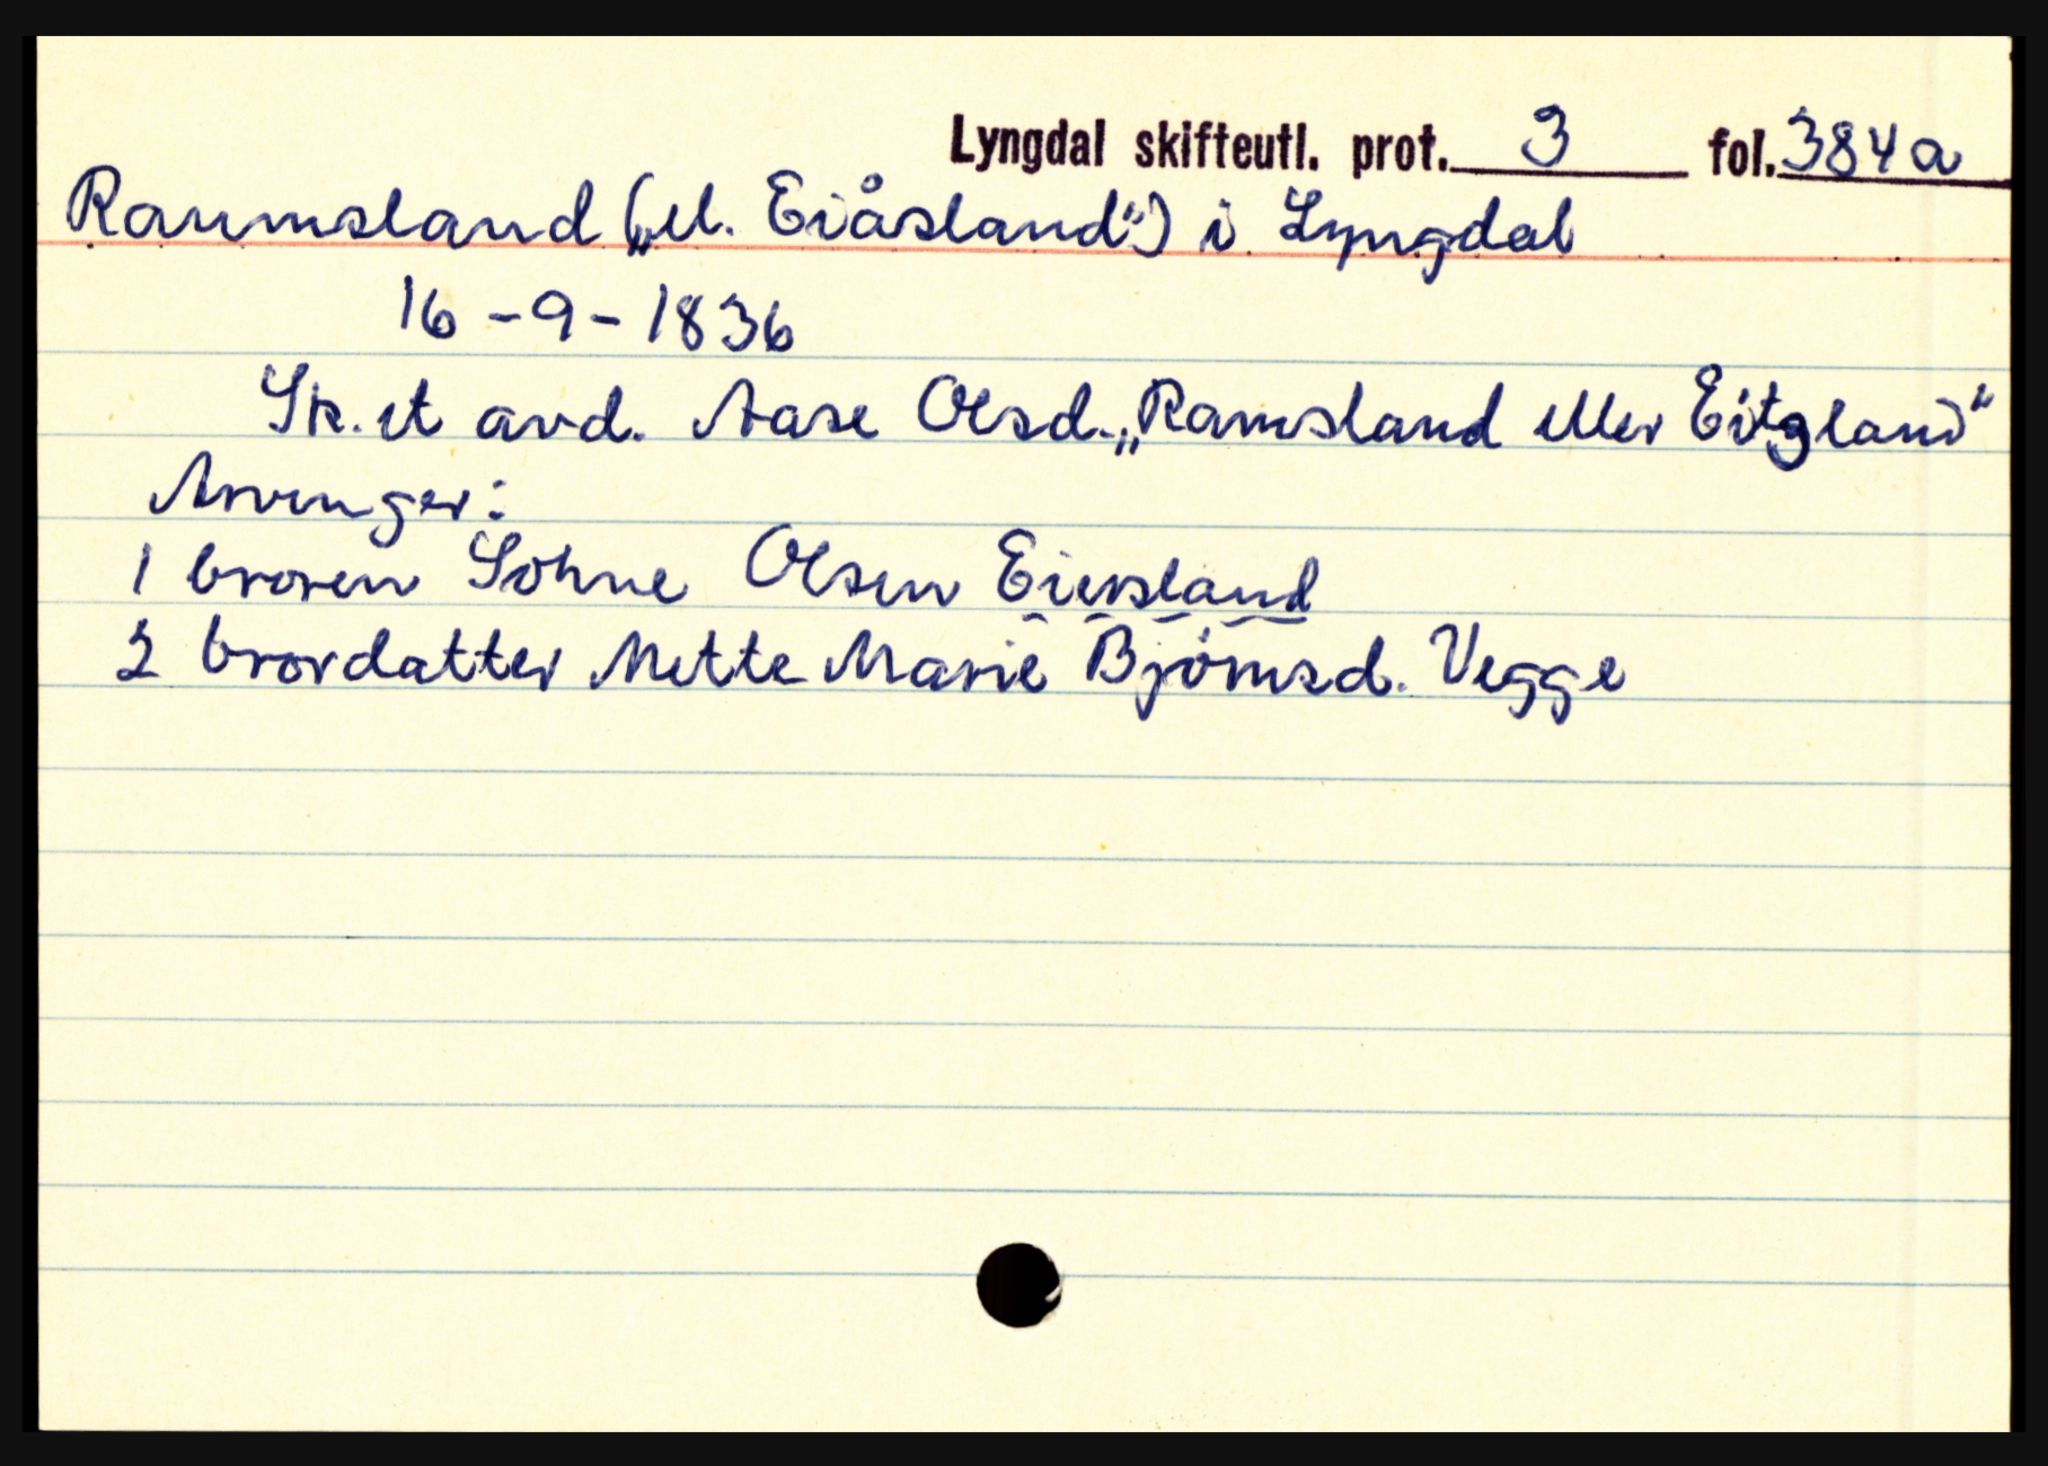 Lyngdal skifteutl. prot. 3 fol. 384a
Raumsland („el. Eiåsland“) i Lyngdal
16-9-1836
Sk. et avd. Aase Olsd. „Ramsland eller Eitzland“
Arvinger:
1 broren Söhne Olsen Eiersland
2 brordatter Mette Marie Bjørnsd. Vegge